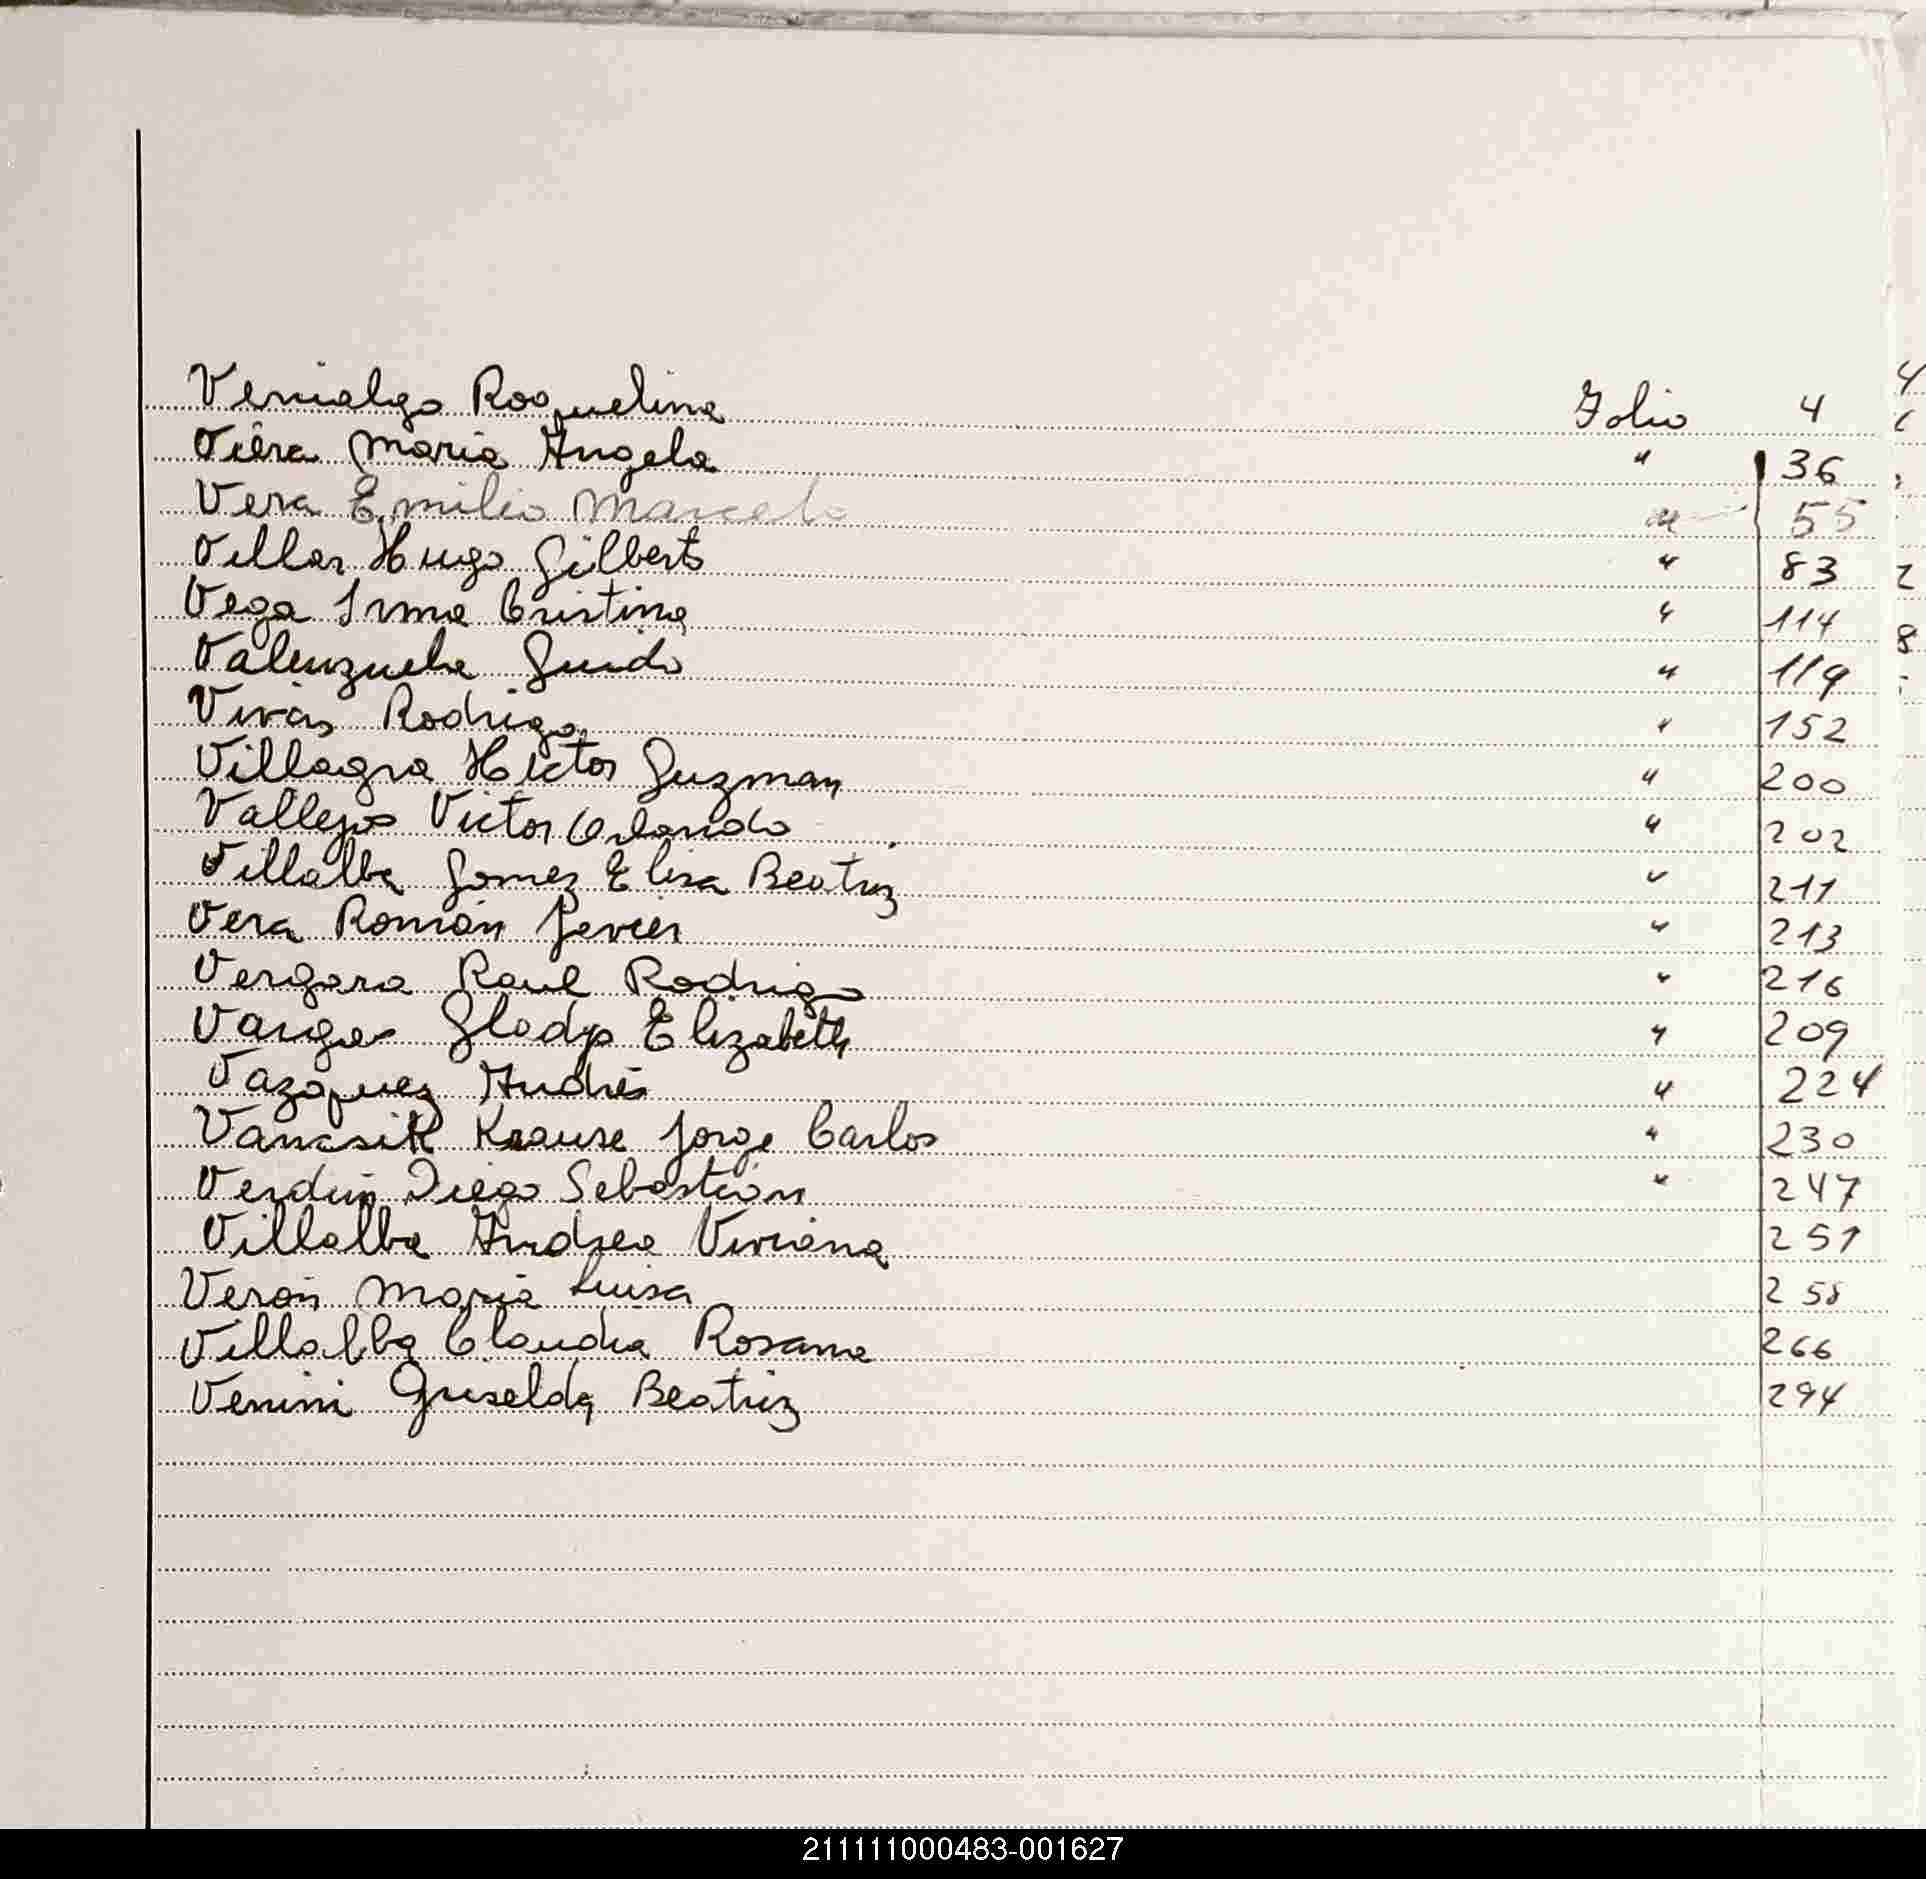 Venialgo Roquelina Folio 4
Viera Maria Angela " 36
Vera Emilio Marcelo " 55
Villar Hugo Gilberto " 83
Vega Irma Cristina " 114
Valenzuela Guido " 119
Vivas Rodrigo " 152
Villagra Hector Guzman " 200
Vallejos Victor Orlando " 202
Villalba Gomez Elisa Beatriz " 211
Vera Román Javier " 213
Vergara Raul Rodrigo " 216
Vargas Gladys Elizabeth " 209
Vazquez Andrés " 224
Vancsik Krause Jorge Carlos " 230
Verdún Diego Sebastián " 247
Villalba Andrea Viviana 251
Verón Maria Luisa 258
Villalba Claudia Rosana 266
Venini Griselda Beatriz 294
211111000483-001627